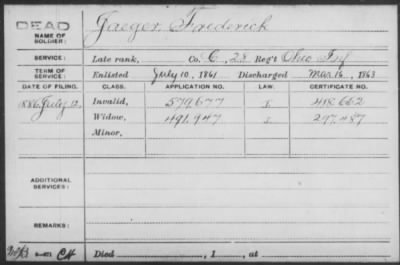 DEAD
NAME OF SOLDIER: Jaeger, Frederick
SERVICE: Late rank, Co. C, 28 Reg't Ohio Inf
TERM OF SERVICE: Enlisted July 10, 1861 Discharged Mar 16, 1863
DATE OF FILING. CLASS. APPLICATION NO. LAW. CERTIFICATE NO.
1886 July 12, Invalid, 579677 418.662
Widow, 491.947 297.487
Minor,
ADDITIONAL SERVICES:
REMARKS:
Died , 1 , at